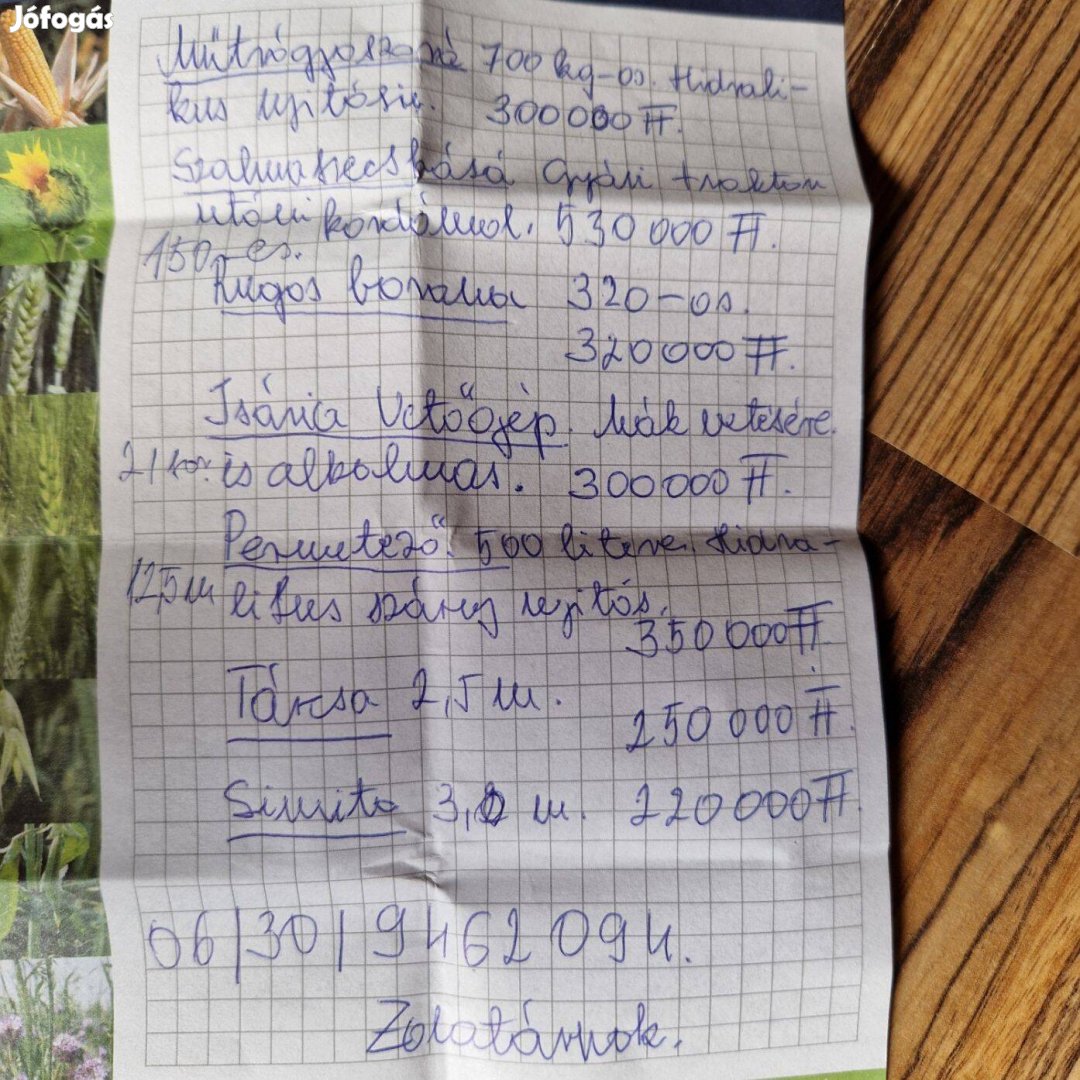 Jófogás
Műtrágyaszoró 700 kg-os. Hidrali-
kus nyitósú. 300000 Ft.
Szalmaszecskásó Gyári traktor
utáni kordánnal. 530 000 Ft.
150-es.
Rugos borona 320-os.
320000 Ft.
Isária Vetőgép. Mák vetésére.
21 sor. is alkalmas. 300000 Ft.
Permetező. 500 literes Hidra-
12,5 m likus szárny nyitós.
350 000 Ft.
Tárcsa 2,5 m.
250 000 Ft.
Simito 3,0 m. 220000 Ft.
06/30/9462094.
Zalatárnok.